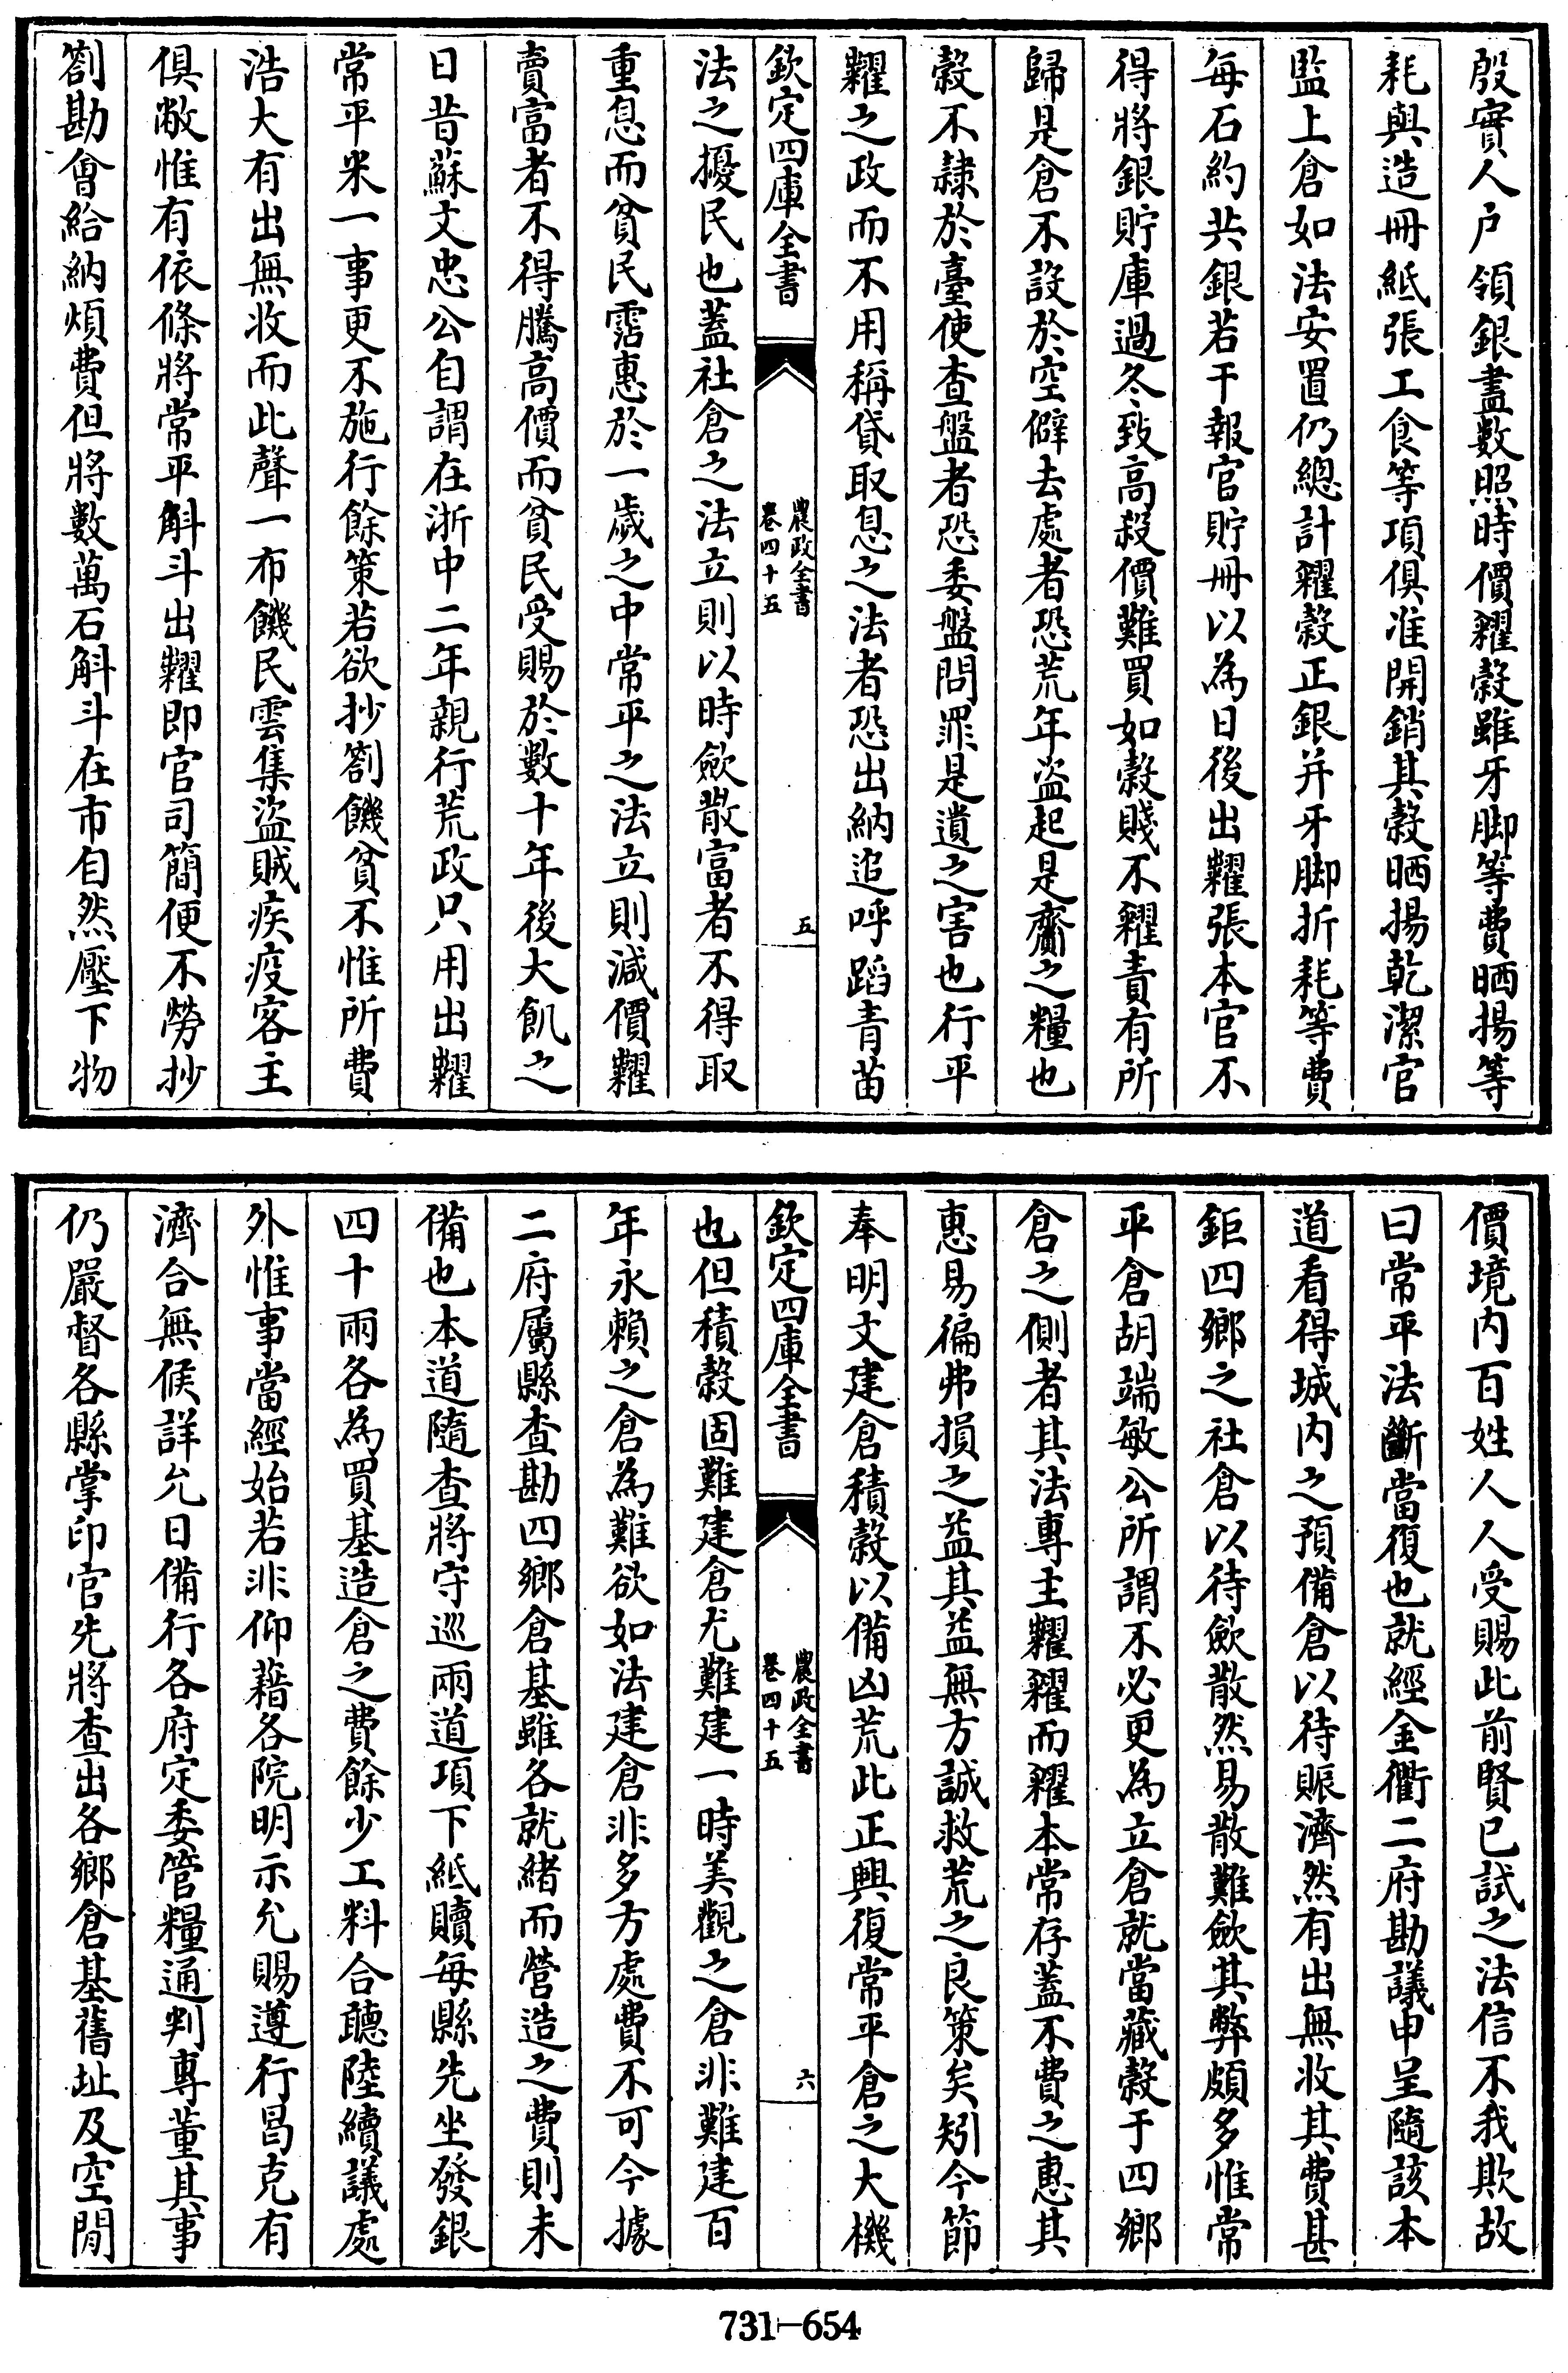 殷實人戶領銀盡數照時價糴穀雖牙脚等費晒揚等
耗與造冊紙張工食等項俱准開銷其穀晒揚乾潔官
監上倉如法安置仍總計糴穀正銀并牙脚折耗等費
每石約共銀若干報官貯冊以為日後出糶張本官不
得將銀貯庫過冬致高穀價難買如穀賤不糴責有所
歸是倉不設於空僻去處者恐荒年盜起是齎之糧也
穀不隸於臺使查盤者恐委盤問罪是遺之害也行平
糶之政而不用稱貸取息之法者恐出納追呼蹈青苗
欽定四庫全書
農政全書
卷四十五
五
法之擾民也蓋社倉之法立則以時歛散富者不得取
重息而貧民霑惠於一歲之中常平之法立則減價糶
賣富者不得騰高價而貧民受賜於數十年後大飢之
日昔蘇文忠公自謂在浙中二年親行荒政只用出糶
常平米一事更不施行餘策若欲抄劄饑貧不惟所費
浩大有出無收而此聲一布饑民雲集盜賊疾疫客主
俱敝惟有依條將常平斛斗出糶即官司簡便不勞抄
劄勘會給納煩費但將數萬石斛斗在市自然壓下物
價境内百姓人人受賜此前賢已試之法信不我欺故
曰常平法斷當復也就經金衢二府勘議申呈隨該本
道看得城内之預備倉以待賑濟然有出無收其費甚
鉅四鄉之社倉以待歛散然易散難歛其弊頗多惟常
平倉胡端敏公所謂不必更為立倉就當藏穀于四鄉
倉之側者其法專主糶糴而糴本常存蓋不費之惠其
惠易徧弗損之益其益無方誠救荒之良策矣矧今節
奉明文建倉積穀以備凶荒此正興復常平倉之大機
欽定四庫全書
農政全書
卷四十五
六
也但積穀固難建倉尤難建一時美觀之倉非難建百
年永賴之倉為難欲如法建倉非多方處費不可今據
二府屬縣查勘四鄉倉基雖各就緒而營造之費則未
備也本道隨查將守巡兩道項下紙贖每縣先坐發銀
四十兩各為買基造倉之費餘少工料合聽陸續議處
外惟事當經始若非仰藉各院明示允賜遵行曷克有
濟合無候詳允日備行各府定委管糧通判專董其事
仍嚴督各縣掌印官先將查出各鄉倉基舊址及空閒
731-654